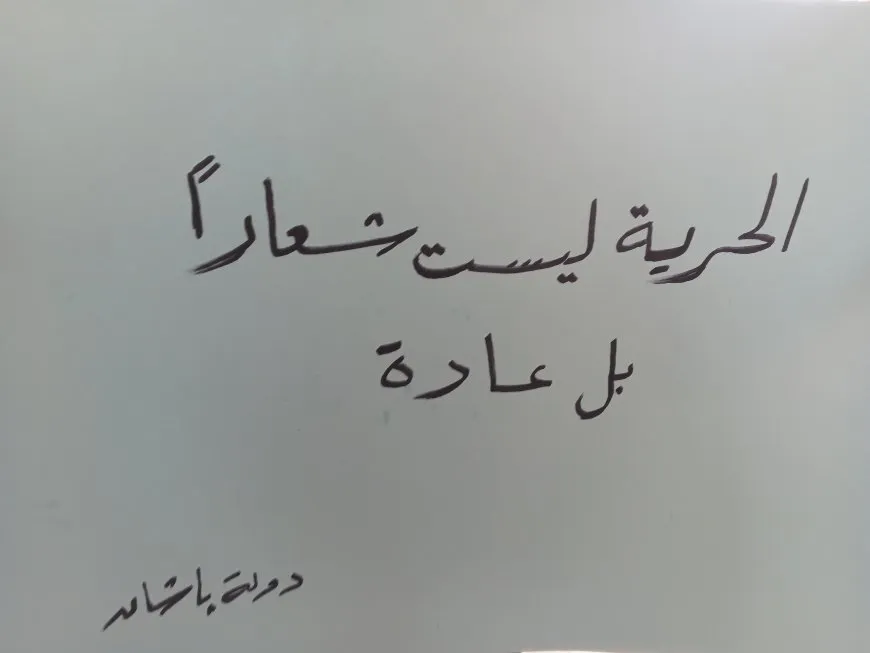 الحرية ليست شعاراً
بل عادة
دولة باشان